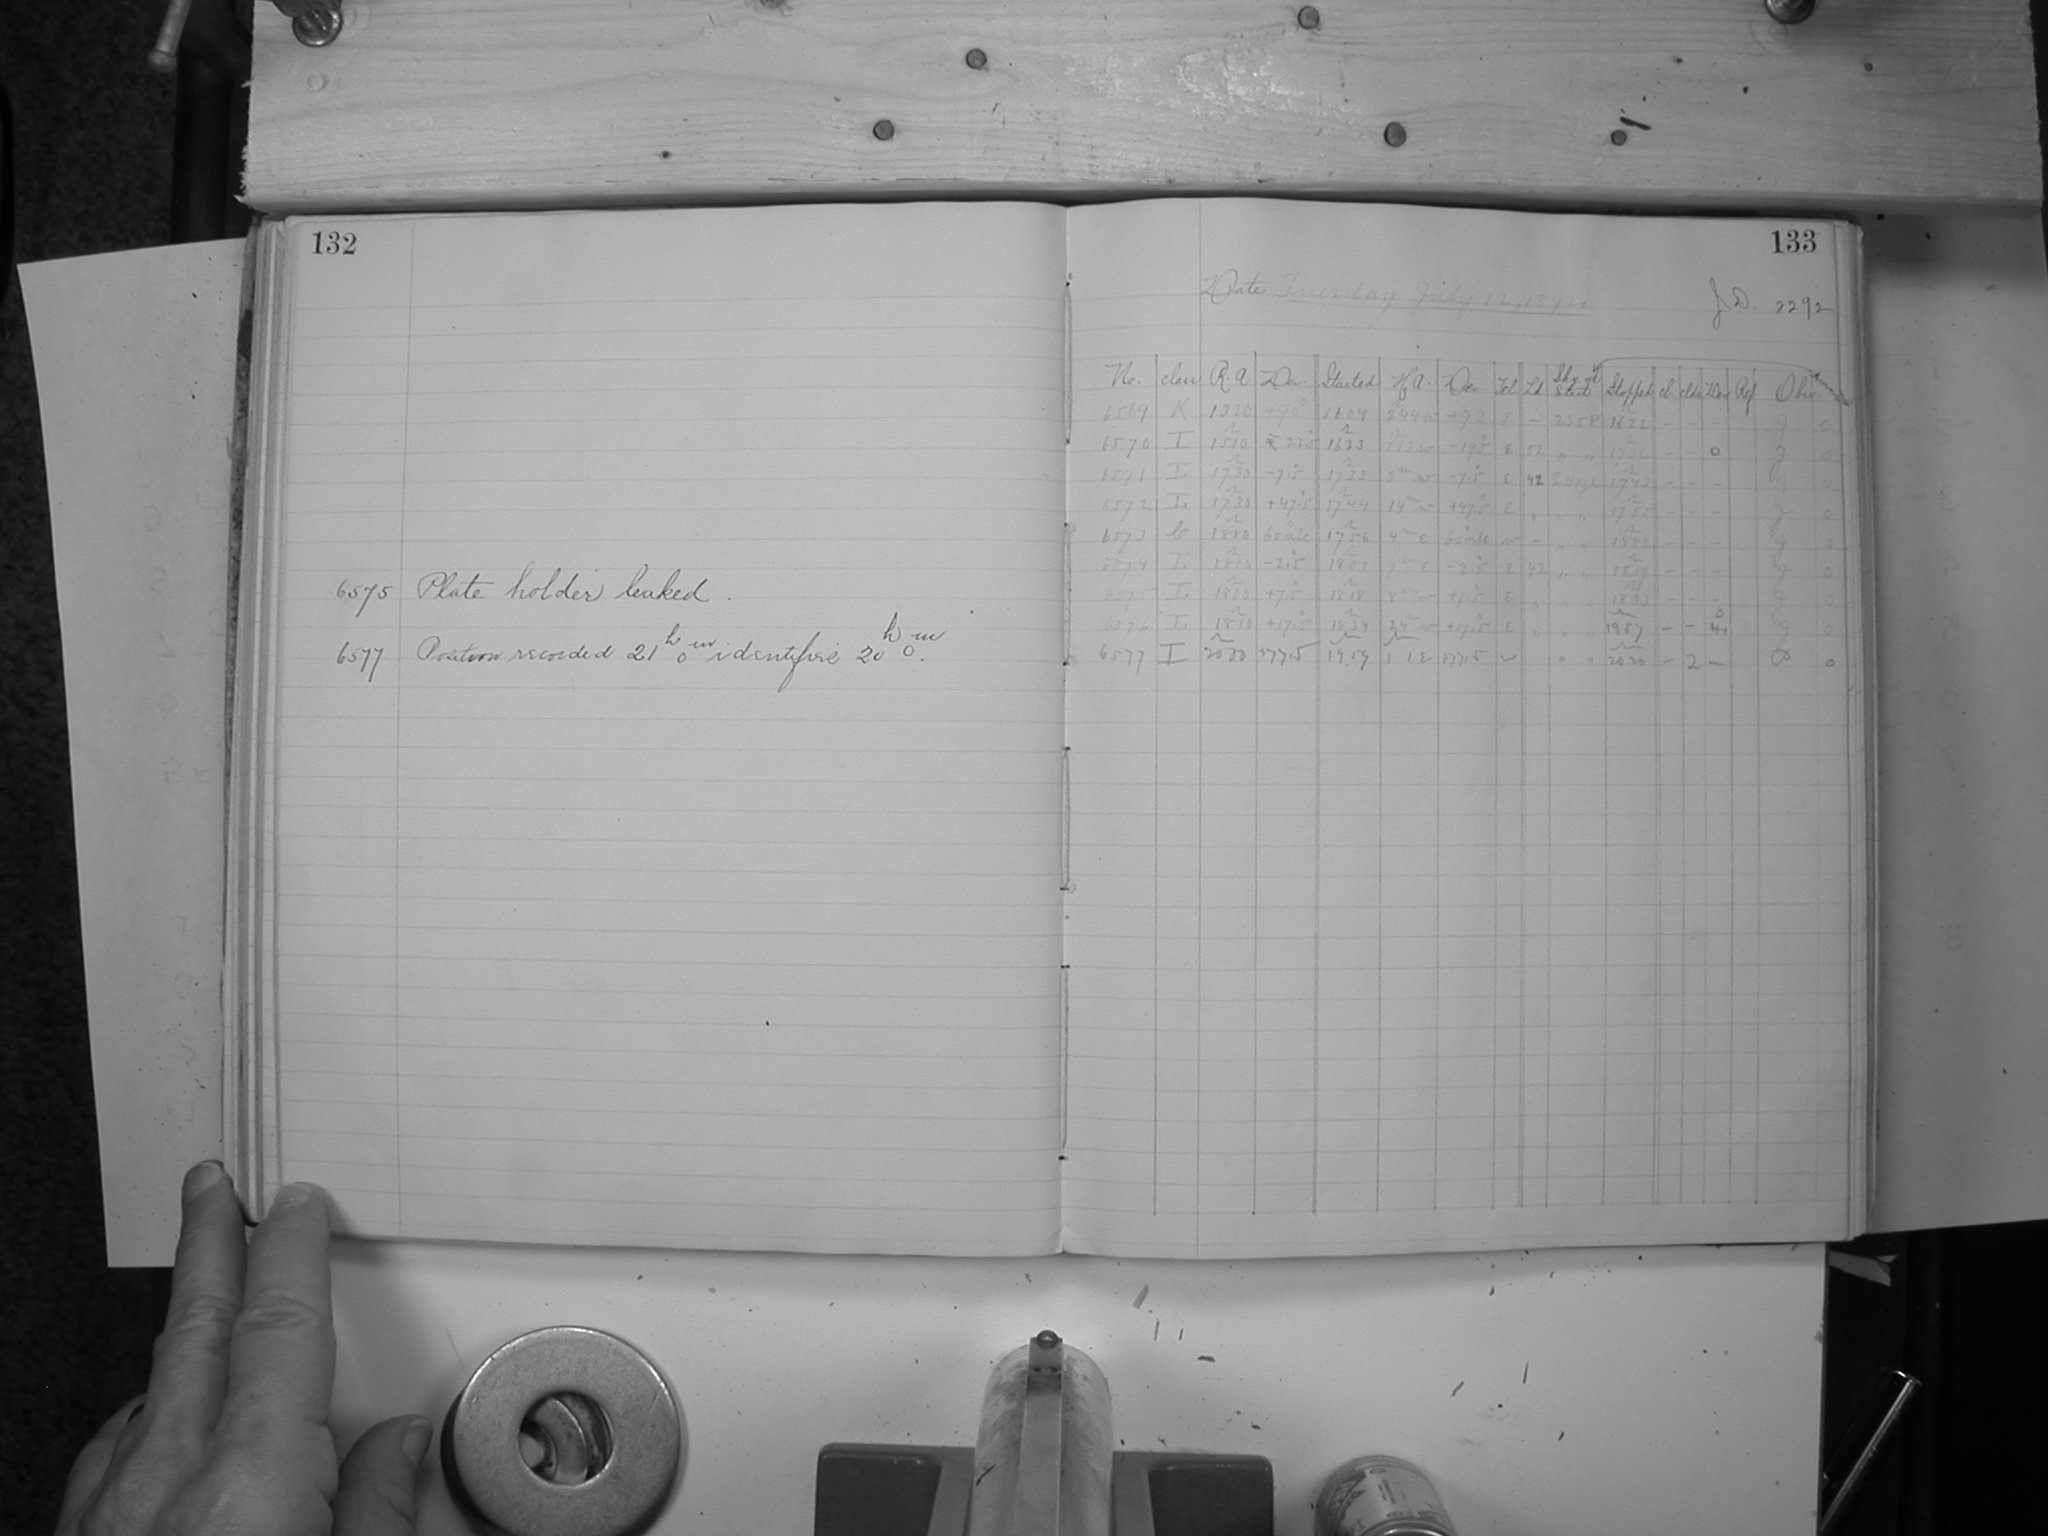 132
6575 Plate holder leaked.
6577 Position recorded 21h 0m identifies 20h 0m.
133
Date Tuesday July 12, 1892.
J.D. 2292
No. class R.A Dec Started H.A. Dec Tel Ld Sky at Start Stopped cl. clk Dec Ref Obs.
6569 K 1320 +90° 1604 244w +93 E - 235P 1622 - - - g 0
6570 I 1510 1623 113w -19.5 E 52 " " 1732 - - 0 g 0
6571 I 1730 -7.5 1733 3m w -7.5 E 42 1743 - - - g 0
6572 I 1730 +47.5 1744 14m w +47.5 E " " " 1755 - - - g 0
6573 C 1800 1756 4m E w - " " 1800 - - - g 0
6574 I 1810 -2.5 1801 9m E -2.5 E 42 " " 1817 - - - g 0
6575 I 1810 +7.5 1818 8m w +7.5 E " " " 1833 - - - g 0
6576 I 1810 +17.5 1834 24m w +17.5 E " " " 1957 - - g 0
6577 I 2000 +77.5 1959 1 1E +77.5 w " " 2020 - 2 - 0